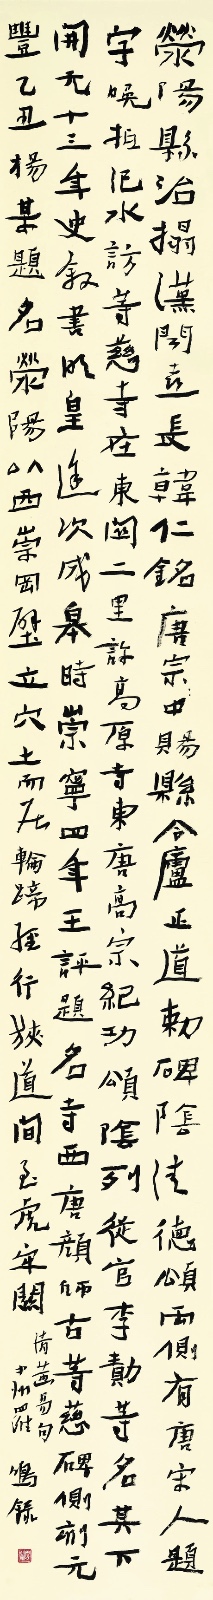 滎陽縣治搨漢閺憙長韓仁銘唐宗中賜縣令盧正道勅碑陰清德頌兩側有唐宋人題
字晚抵汜水訪等慈寺在東關二里許高原寺東唐高宗紀功頌陰列從官李勣等名其下
開元十三年史敘書明皇進次成皋時崇寧四年王評題名寺西唐顏師古等慈碑側刻元
豐乙丑楊某題名滎陽以西崇岡壁立穴土而居輪蹄經行狹道間至虎牢關
清黃易句
鳴錄